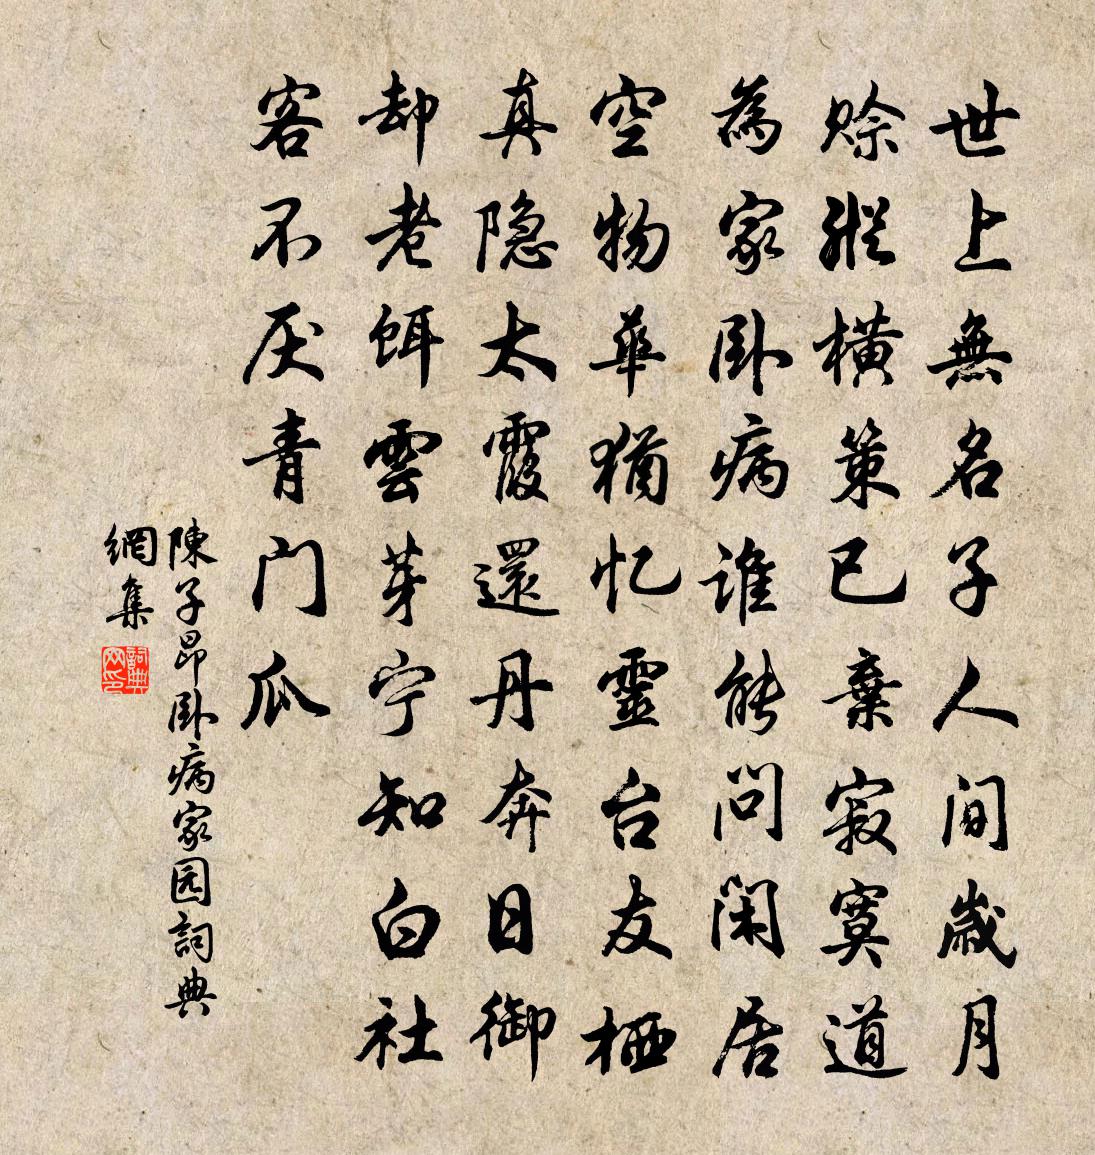 世上無名子人间歲月
赊縱橫策已棄寂寞道
為家卧病谁能問闲居
空物華猶忆靈台友栖
真隐太霞還丹奔日御
却老饵雲芽宁知白社
客不厌青门瓜
陳子昂卧病家园詞典
網集
詞典網印